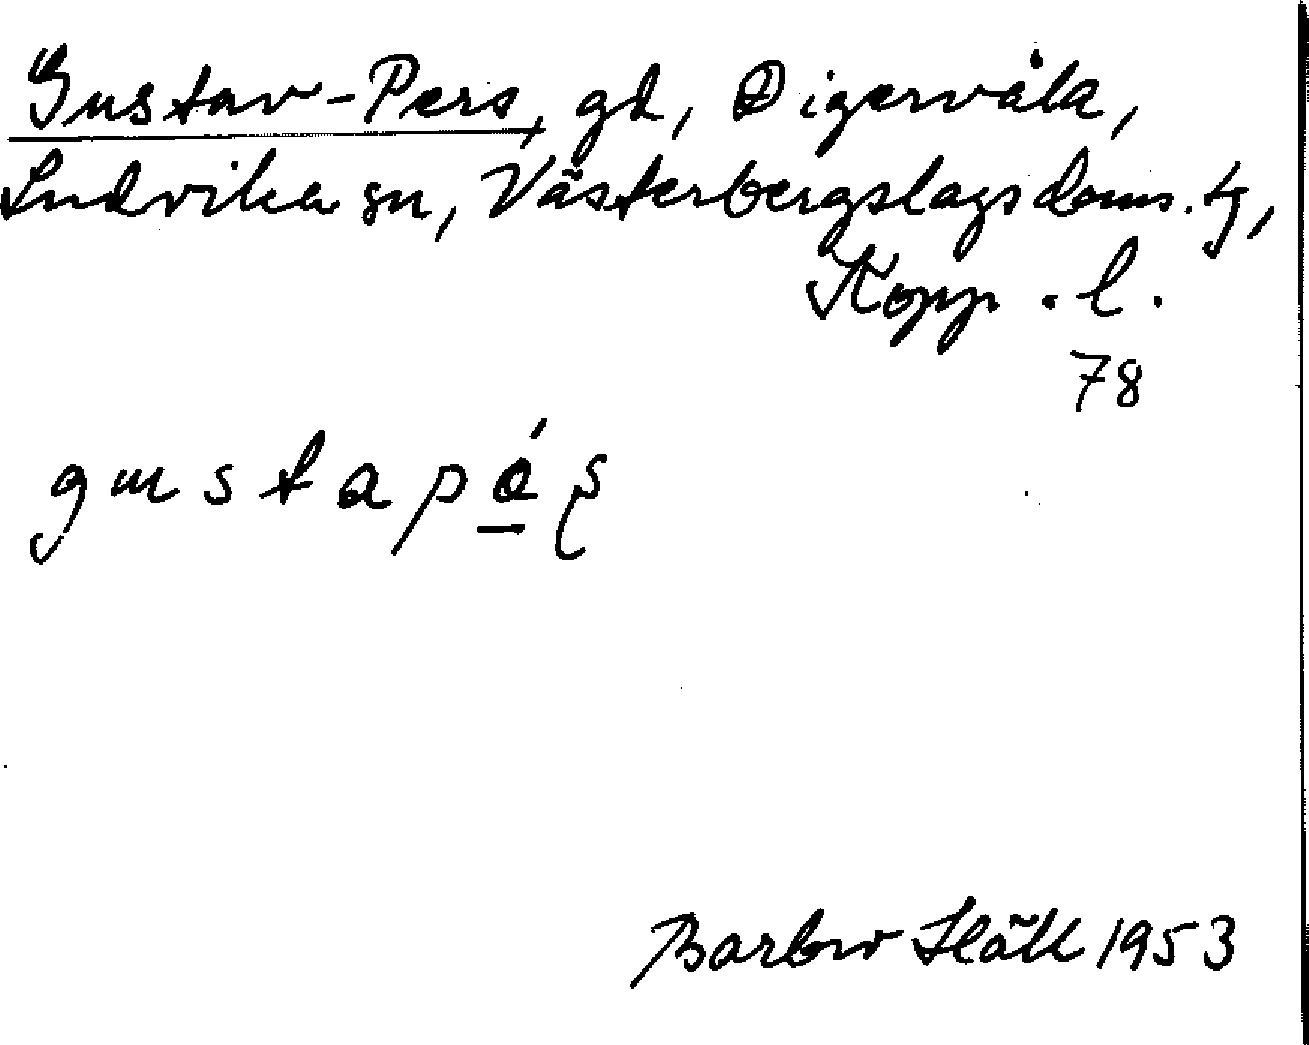 Gustav-Pers, gd, Digervåla,
Ludvika sn, Västerbergslags doms. tg,
Kopp. l.
78
gustapás
1953